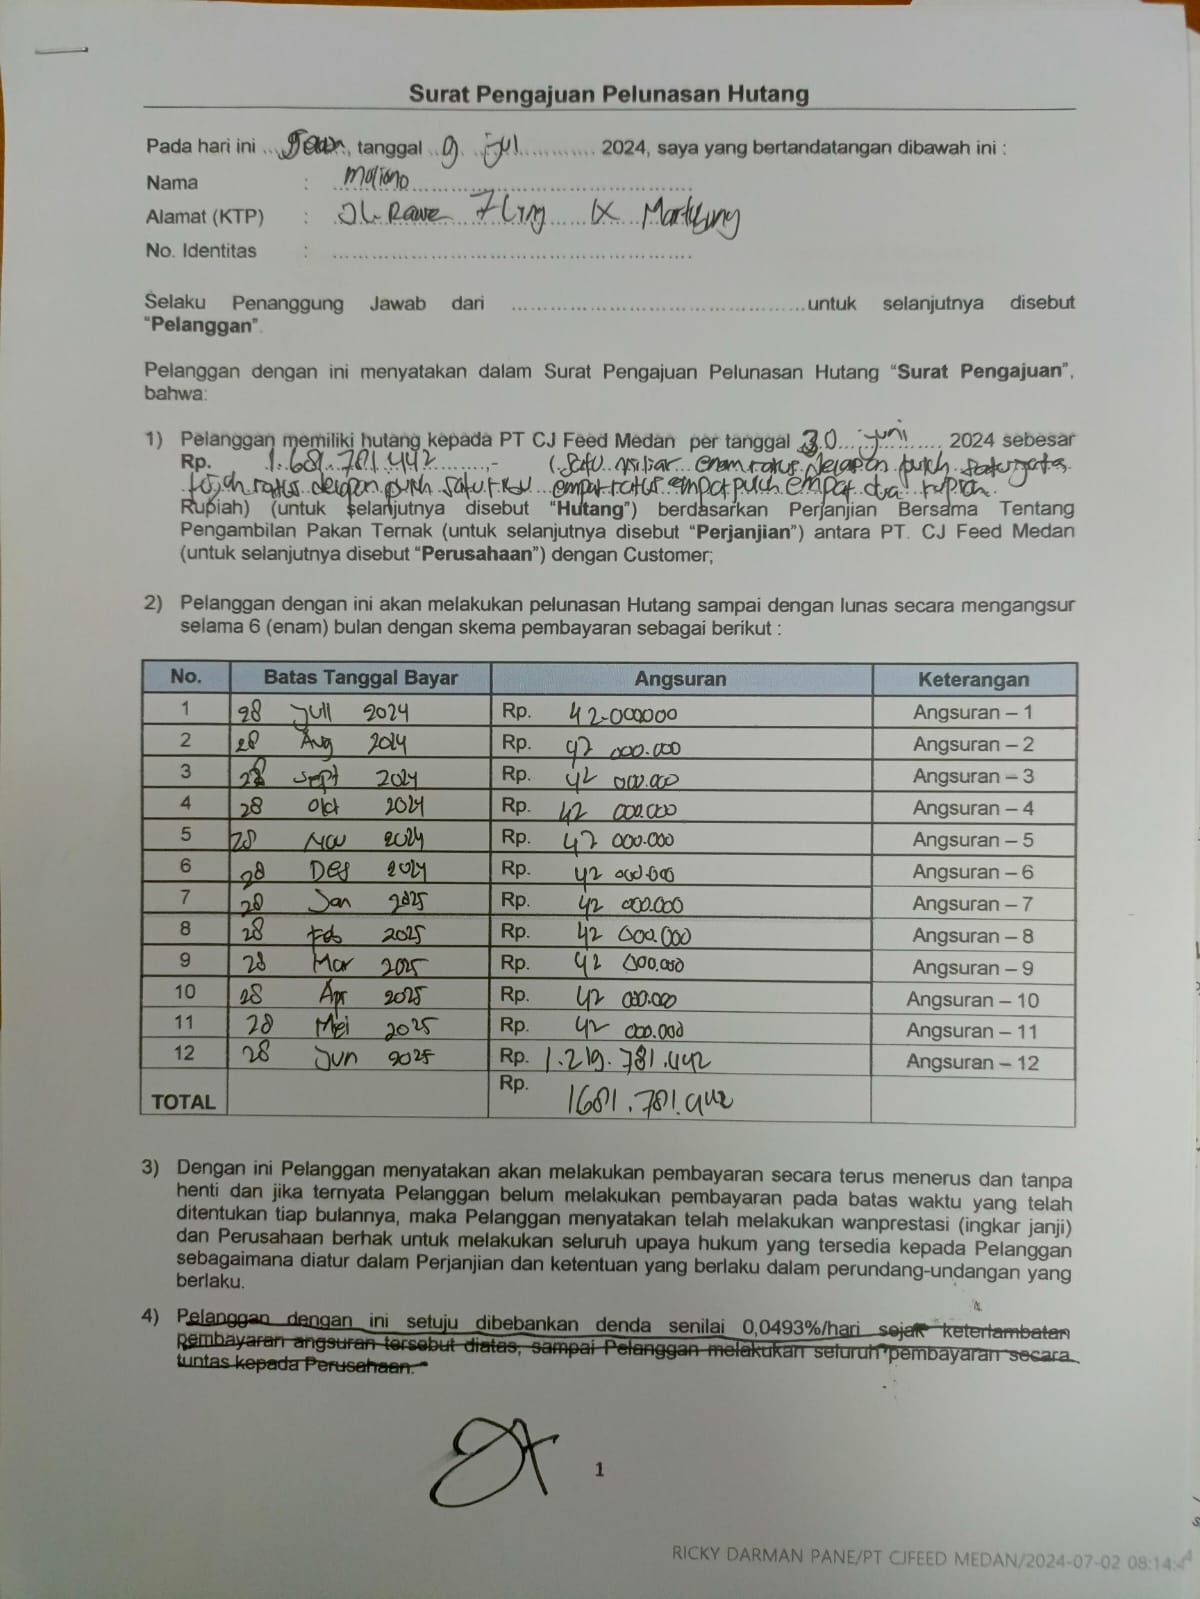 Surat Pengajuan Pelunasan Hutang
Pada hari ini ........, tanggal ..9.. jul............ 2024, saya yang bertandatangan dibawah ini :
Nama : moliono
Alamat (KTP) : JL. Rawe 7 Ling IX Martubung
No. Identitas : ....................................................
Selaku Penanggung Jawab dari ..........................................untuk selanjutnya disebut
“Pelanggan”.
Pelanggan dengan ini menyatakan dalam Surat Pengajuan Pelunasan Hutang “Surat Pengajuan”,
bahwa:
1) Pelanggan memiliki hutang kepada PT CJ Feed Medan per tanggal 30... juni ... 2024 sebesar
Rp. 1.681.781.442 ,- (Satu miliar enam ratus delapan puluh satu juta
tujuh ratus delapan puluh satu ribu empat ratus empat puluh empat dua rupiah
Rupiah) (untuk selanjutnya disebut “Hutang”) berdasarkan Perjanjian Bersama Tentang
Pengambilan Pakan Ternak (untuk selanjutnya disebut “Perjanjian”) antara PT. CJ Feed Medan
(untuk selanjutnya disebut “Perusahaan”) dengan Customer;
2) Pelanggan dengan ini akan melakukan pelunasan Hutang sampai dengan lunas secara mengangsur
selama 6 (enam) bulan dengan skema pembayaran sebagai berikut :
No. Batas Tanggal Bayar Angsuran Keterangan
1 28 Juli 2024 Rp. 42.000000 Angsuran – 1
2 28 Aug 2024 Rp. 42 000.000 Angsuran – 2
3 28 Sept 2024 Rp. 42 000.000 Angsuran – 3
4 28 Okt 2024 Rp. 42 000.000 Angsuran – 4
5 28 Nov 2024 Rp. 42 000.000 Angsuran – 5
6 28 Des 2024 Rp. 42 000.000 Angsuran – 6
7 28 Jan 2025 Rp. 42 000.000 Angsuran – 7
8 28 Feb 2025 Rp. 42 000.000 Angsuran – 8
9 28 Mar 2025 Rp. 42 000.000 Angsuran – 9
10 28 Apr 2025 Rp. 42 000.000 Angsuran – 10
11 28 Mei 2025 Rp. 42 000.000 Angsuran – 11
12 28 Jun 2025 Rp. 1.219.781.442 Angsuran – 12
TOTAL Rp. 1681.781.442
3) Dengan ini Pelanggan menyatakan akan melakukan pembayaran secara terus menerus dan tanpa
henti dan jika ternyata Pelanggan belum melakukan pembayaran pada batas waktu yang telah
ditentukan tiap bulannya, maka Pelanggan menyatakan telah melakukan wanprestasi (ingkar janji)
dan Perusahaan berhak untuk melakukan seluruh upaya hukum yang tersedia kepada Pelanggan
sebagaimana diatur dalam Perjanjian dan ketentuan yang berlaku dalam perundang-undangan yang
berlaku.
4) Pelanggan dengan ini setuju dibebankan denda senilai 0,0493%/hari sejak keterlambatan
pembayaran angsuran tersebut diatas, sampai Pelanggan melakukan seluruh pembayaran secara
tuntas kepada Perusahaan.
1
RICKY DARMAN PANE/PT CJFEED MEDAN/2024-07-02 08:14:4